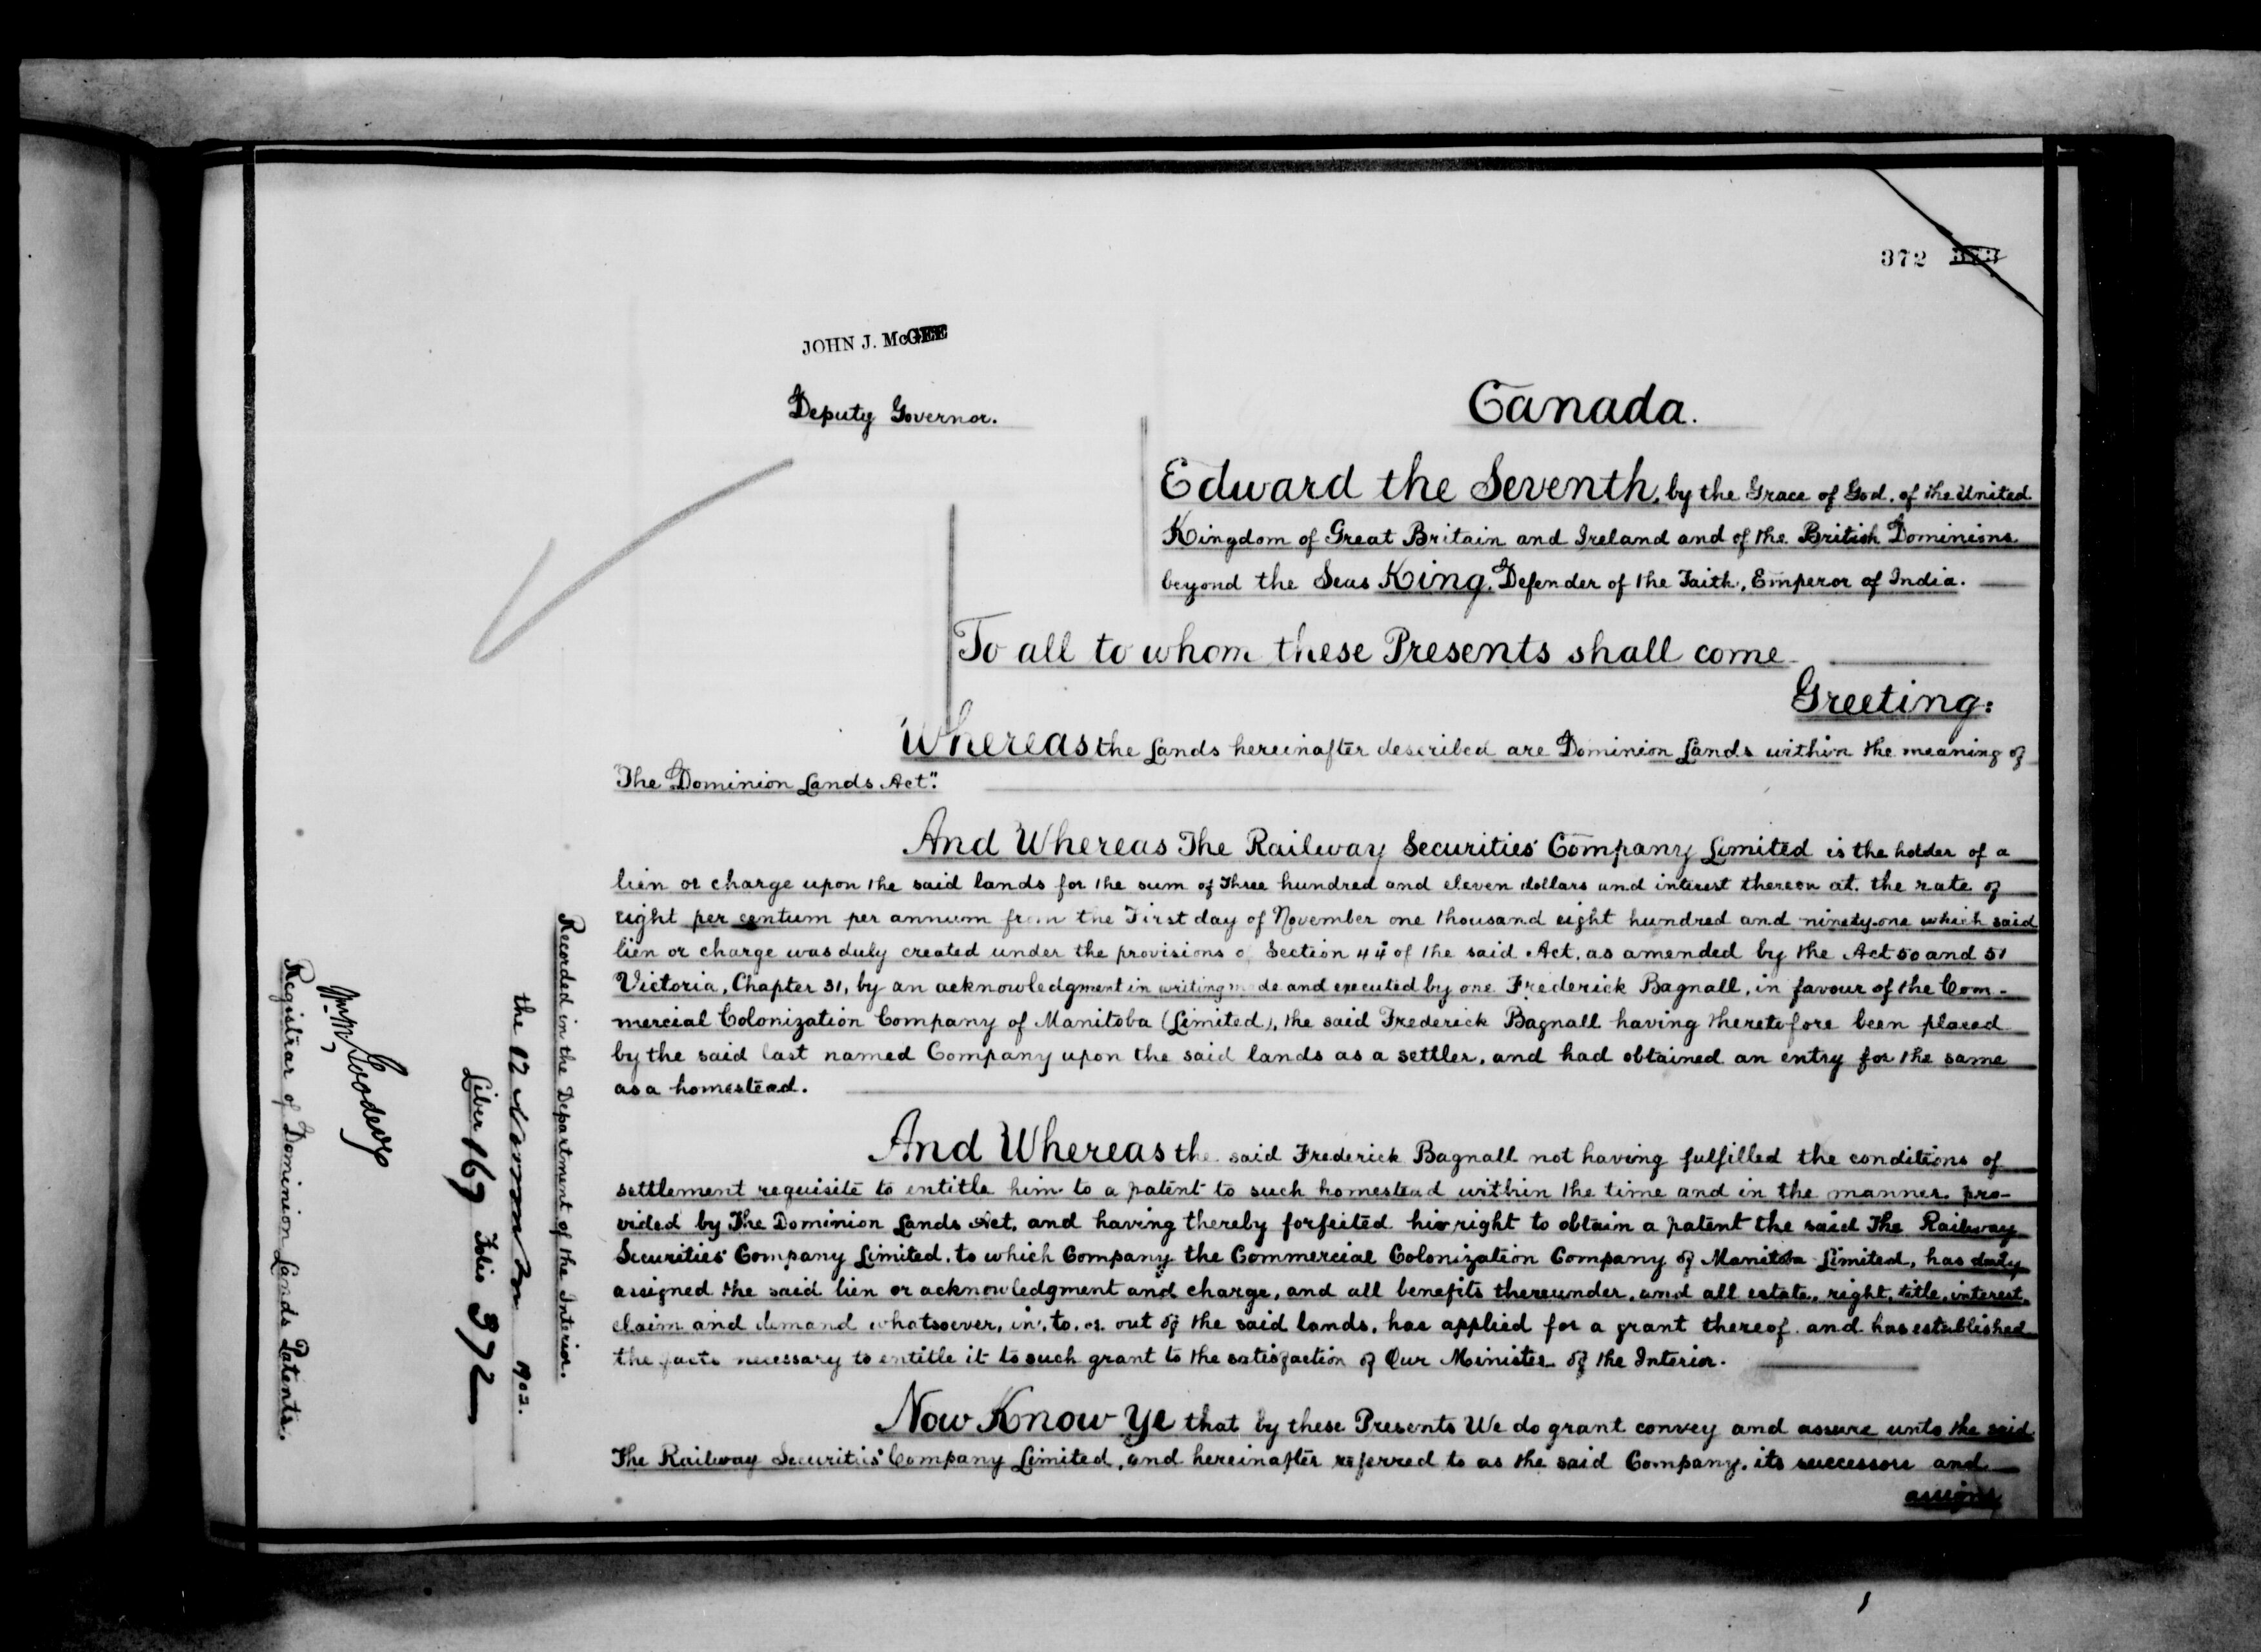 372 373
JOHN J. McGEE
Deputy Governor.
Canada.
Edward the Seventh, by the Grace of God, of the United
Kingdom of Great Britain and Ireland and of the British Dominions
beyond the Seas King, Defender of the Faith, Emperor of India.
To all to whom these Presents shall come
Greeting:
Whereas the Lands hereinafter described are Dominion Lands within the meaning of
"The Dominion Lands Act".
And Whereas The Railway Securities' Company Limited is the holder of a
lien or charge upon the said lands for the sum of Three hundred and eleven dollars and interest thereon at the rate of
eight per centum per annum from the First day of November one thousand eight hundred and ninety-one which said
lien or charge was duly created under the provisions of Section 44 of the said Act, as amended by the Act 50 and 51
Victoria, Chapter 31, by an acknowledgment in writing made and executed by one Frederick Bagnall, in favour of the Com-
mercial Colonization Company of Manitoba (Limited), the said Frederick Bagnall having theretofore been placed
by the said last named Company upon the said lands as a settler, and had obtained an entry for the same
as a homestead.
And Whereas the said Frederick Bagnall not having fulfilled the conditions of
settlement requisite to entitle him to a patent to such homestead within the time and in the manner pro-
vided by The Dominion Lands Act, and having thereby forfeited his right to obtain a patent the said The Railway
Securities' Company Limited, to which Company the Commercial Colonization Company of Manitoba Limited, has duly
assigned the said lien or acknowledgment and charge, and all benefits thereunder, and all estate, right, title, interest,
claim and demand whatsoever, in, to, or out of the said lands, has applied for a grant thereof and has established
the facts necessary to entitle it to such grant to the satisfaction of Our Minister of the Interior.
Now Know Ye that by these Presents We do grant convey and assure unto the said
The Railway Securities' Company Limited, and hereinafter referred to as the said Company, its successors and
assigns,
Recorded in the Department of the Interior.
the 12 1902.
Liber 169 Folio 372
Registrar of Dominion Lands Patents.